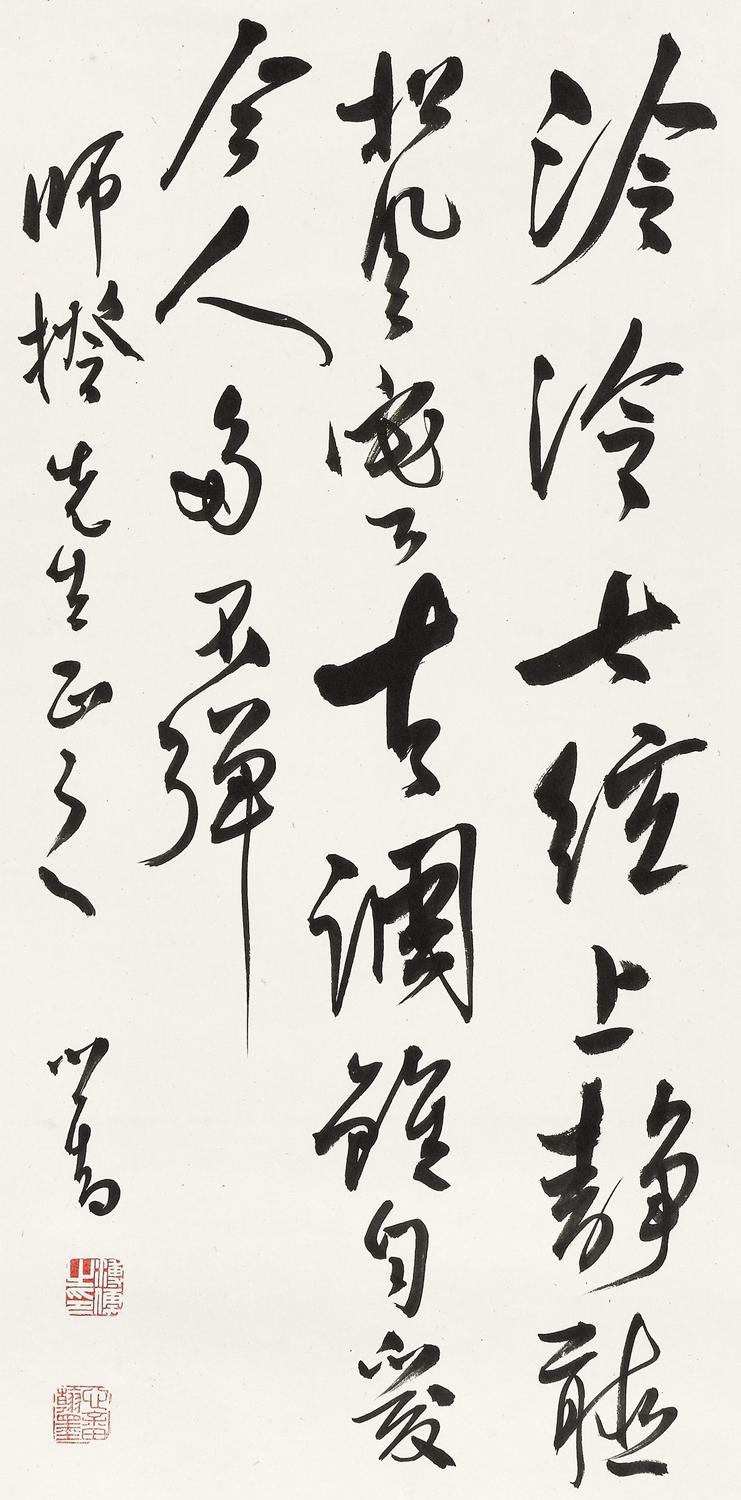 泠泠七絃上靜聽
松風寒古調雖自愛
今人多不彈
師揆先生正之 心畬
溥儒之印